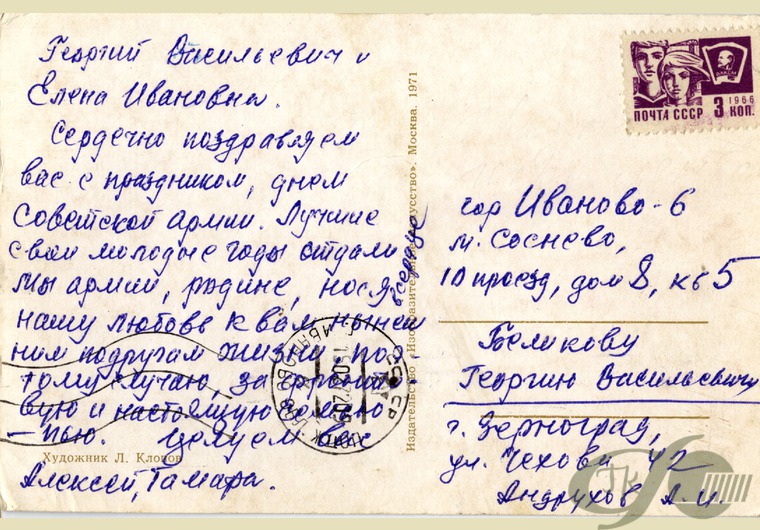 Георгий Васильевич и
Елена Ивановна.
Сердечно поздравляем
вас с праздником, днем
Советской армии. Лучшие
свои молодые годы отдали
мы армии, родине, нося в сердце
нашу любовь к вам, нынеш
ним подругам жизни, поэ-
тому
вую и настоящую
-пью. Целуем Вас
Алексей, Тамара.
Художник Л. Клопов
Издательство «Изобразительное искусство». Москва. 1971
ПОЧТА СССР 3 КОП.
1966
гор Иваново-6
м. Соснево,
10 проезд, дом 8, кв 5
Беликову
Георгию Васильевичу
г. Зерноград,
ул. Чехова 42
Андрухов А. И.